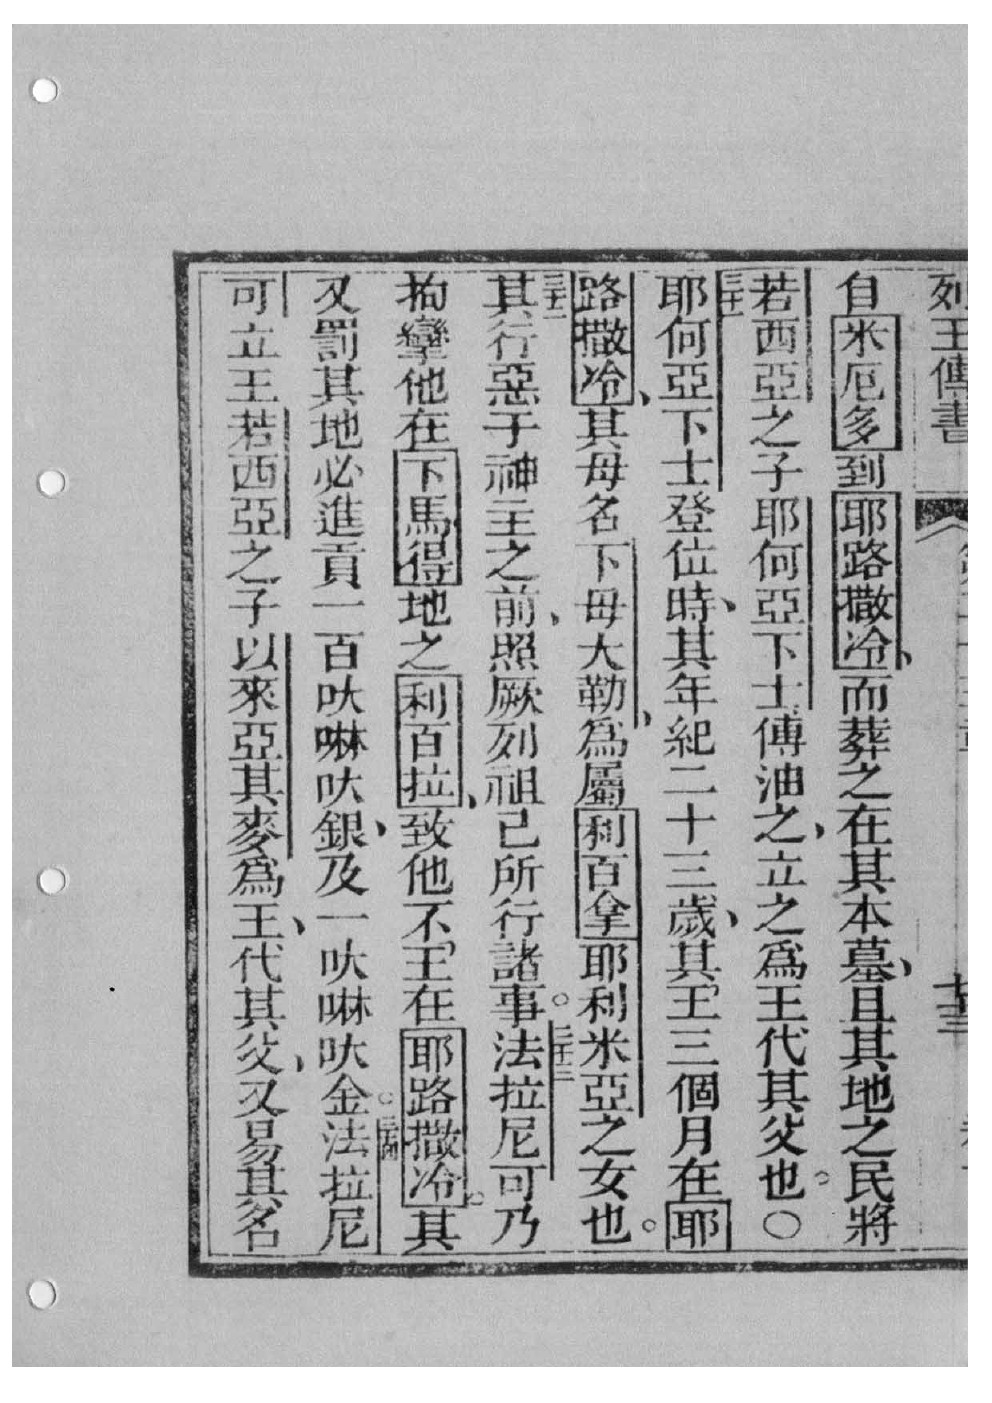 列王傳書
自米厄多到耶路撒冷、而葬之在其本墓、且其地之民將
若西亞之子耶何亞下士傅油之、立之爲王代其父也。〇
三十一耶何亞下士登位時、其年紀二十三歲、其王三個月在耶
路撒冷、其母名下毋大勒、爲屬利百拿耶利米亞之女也。
三十二其行惡于神主之前、照厥列祖已所行諸事。三十三法拉尼可乃
拘攣他在下馬得地之利百拉、致他不王在耶路撒冷。其
又罰其地必進貢一百吙啉吙銀、及一吙啉吙金。三十四法拉尼
可立王若西亞之子以來亞其麥爲王、代其父、又易其名